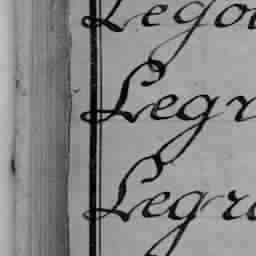 Legou
Legr
Legra